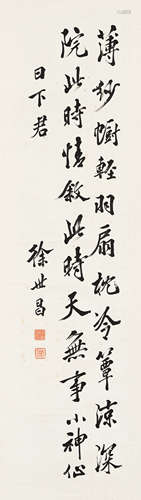 薄紗幮輕羽扇枕冷簟涼深
院此時情敘此時天無事小神仙
日下君
徐世昌